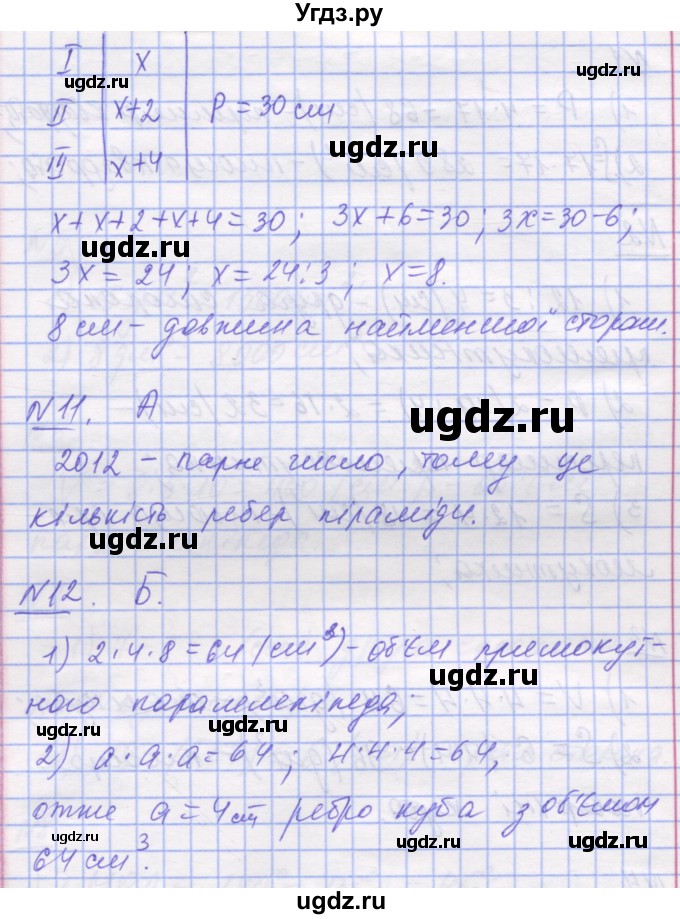 Угдз.ру
I | x
ugdz.ru ugdz.ru
II | x+2 | P = 30 см
ugdz.ru
III | x+4
x+x+2+x+4=30; 3x+6=30; 3x=30-6;
ugdz.ru
3x=24; x=24:3; x=8.
8 см - довжина найменшої сторони.
№11. А
ugdz.ru
2012 - парне число, тому це
кількість ребер піраміди.
ugdz.ru
№12. Б.
1) 2·4·8=64 (см³) - об'єм прямокут-
ugdz.ru
ного паралелепіпеда;
ugdz.ru ugdz.ru
2) a·a·a=64; 4·4·4=64,
отже a=4см ребро куба з об'ємом
ugdz.ru ugdz.ru
64 см³.
ugdz.ru
ugdz.ru